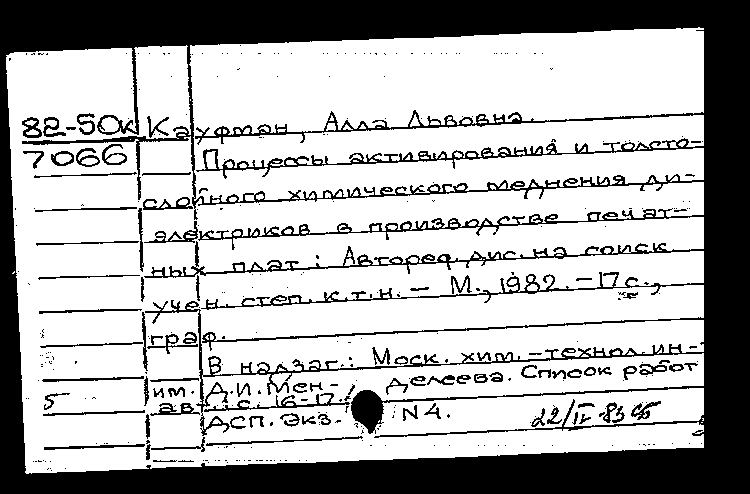 82-50к Кауфман, Алла Львовна.
7066 Процессы активирования и толсто-
слойного химического меднения ди-
электриков в производстве печат-
ных плат : Автореф. дис. на соиск.
учен. степ. к.т.н. – М., 1982. – 17 с.,
граф.
В надзаг.: Моск. хим.-технол. ин-т
5 им. Д.И. Менделеева. Список работ
авт.: с. 16-17.
ДСП. Экз. N 4. 22/IV-83